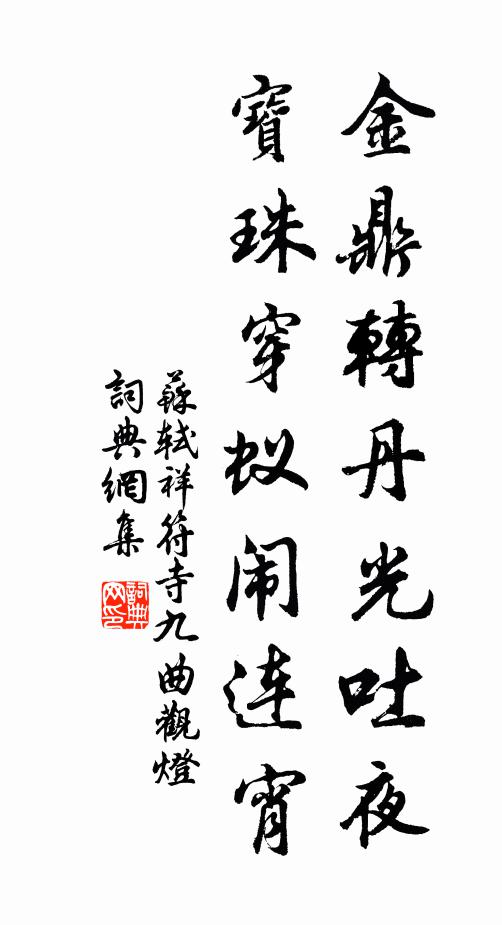 金鼎轉丹光吐夜
寶珠穿蚁闹连宵
蘇轼祥符寺九曲觀燈
詞典網集
詞典网印